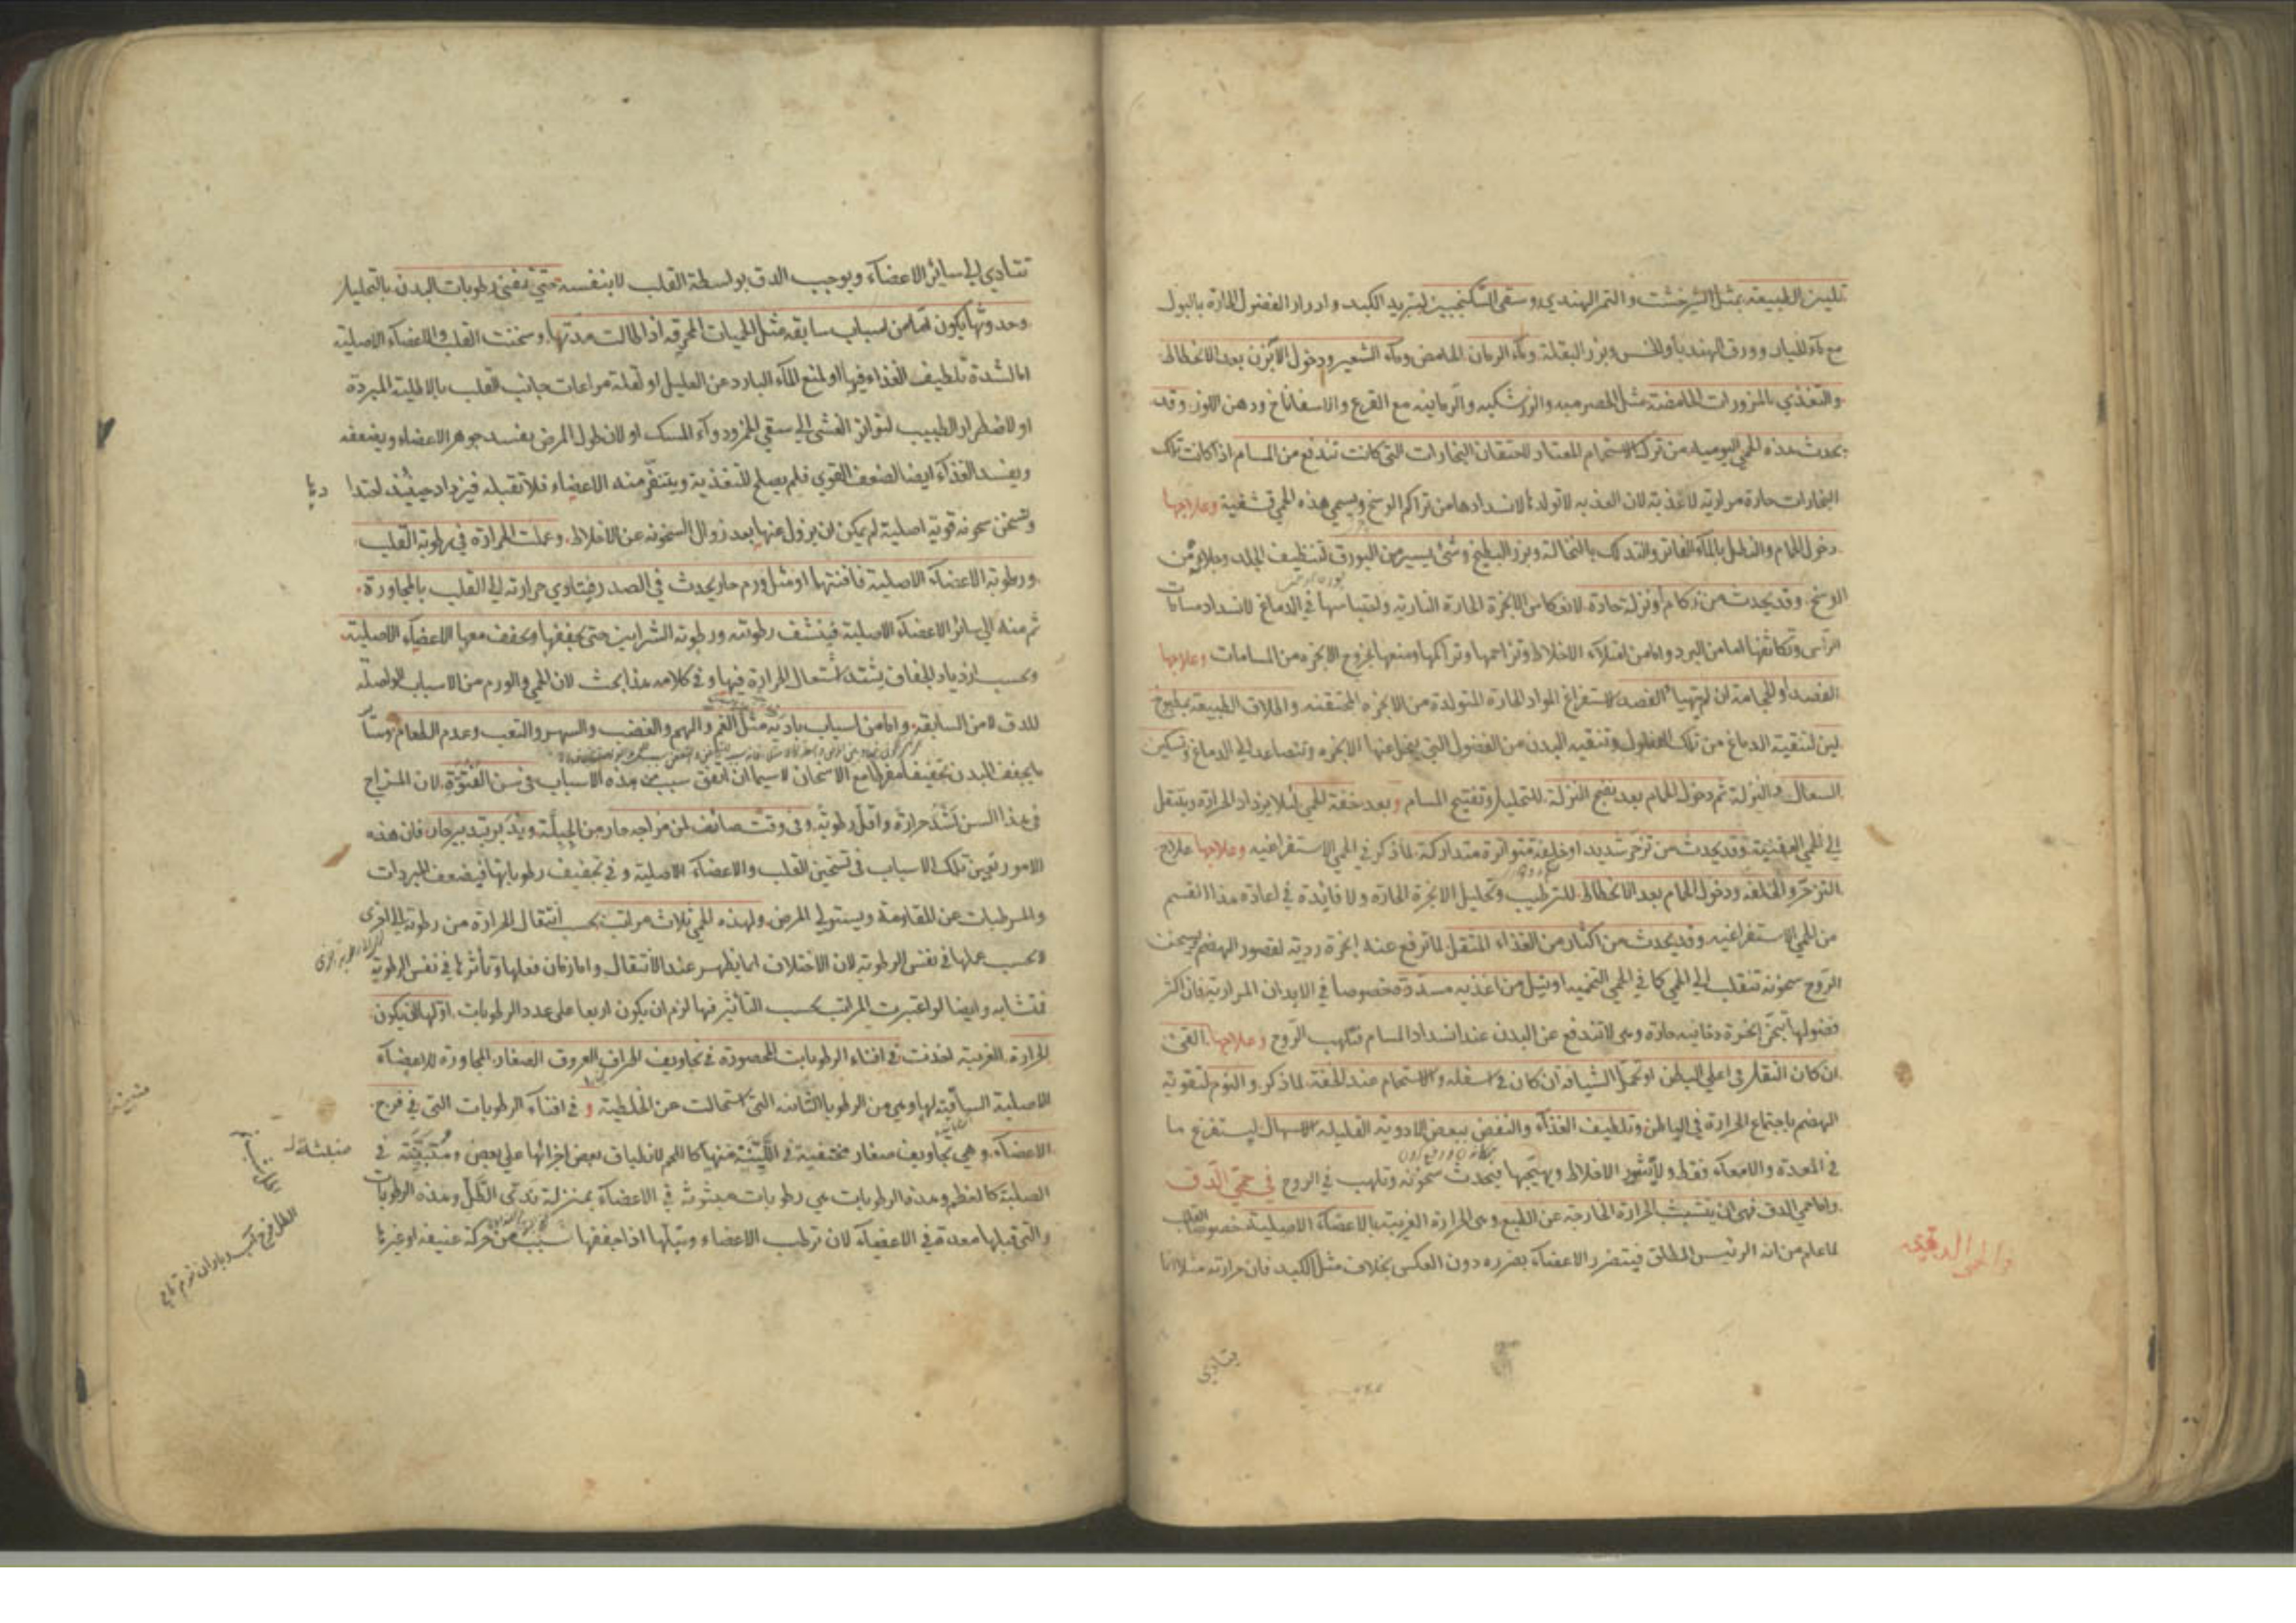 تليين الطبيعة بمثل الشيرخشت والتمر الهندي وسقي السكنجبين لتبريد الكبد وادرار الفضول الحارة بالبول
مع ماء الخيار وورق الهندبا والخس وبزر البقلة وماء الرمان الحامض وماء الشعير ودخول الآبزن بعد الانحطاط
والتغذي بالمزورات الحامضة مثل الحصرميه والزرشكيه والرمانيه مع القرع والاسفاناخ ودهن اللوز وقد
يحدث هذه الحمي اليوميه من ترك الاستحمام المعتاد لاحتقان البخارات التي كانت تندفع من المسام اذا كانت تلك
البخارات حارة مرارية لا عذبة لان العذبه لا تولد لانسدادها من تراكم الوسخ ويسمي هذه الحمي قشفية وعلاجها
دخول الحمام والتنطيل بالماء الفاتر والتدلك بالنخالة وبزر البطيخ وشئ يسير من البورق لتنظيف الجلد وجلائه من
الوسخ وقد يحدث من زكام او نزلة حادة لانعكاس الابخرة الحارة النارية واحتباسها في الدماغ لانسداد مسامات
الرأس وتكاثفها اما من البرد واما من امتلاء الاخلاط وتزاحمها وتراكمها ومنعها لخروج الابخره من المسامات وعلاجها
الفصد او الحجامة ان لم يتهيأ الفصد لاستفراغ المواد الحارة المتولدة من الابخره المحتقنه واطلاق الطبيعة بمطبوخ
لين لتنقية الدماغ من تلك الفضول وتنقيه البدن من الفضول التي ينحل عنها الابخره وتتصاعد الي الدماغ وتسكين
السعال والنزلة ثم دخول الحمام بعد نضج النزلة للتحليل وتفتيح المسام وبعد خفة الحمي لئلا يزداد الحرارة وينتقل
الي الحمي العفنية وقد يحدث من تزحر شديد او خلفة متواترة متداركة لما ذكر في الحمي الاستفراغيه وعلاجها علاج
التزحر والخلفه ودخول الحمام بعد الانحطاط للترطيب وتحليل الابخرة الحارة ولا فايدة في اعادة هذا القسم
من الحمي الاستفراغيه وقد يحدث من اكثار من الغذاء المثقل لما ترفع عنه ابخرة ردية لقصور الهضم يسخن
الروح سخونة تنقلب الي الحمي كما في الحمي التخميه او ينيل من اغذيه مسددة خصوصا في الابدان المرارية فان اكثر
فضولها ابخرة دخانيه حارة وهى لا تندفع عن البدن عند انسداد المسام فتلهب الروح وعلاجها القئ
ان كان الثقل فى اعلي البطن او تحمل الشيافه ان كان في اسفله والاستحمام عند الخفة لما ذكر والنوم لتقوية
الهضم باجتماع الحرارة في الباطن وتلطيف الغذاء والنفض ببعض الادوية القليلة الاسهال ليستفرغ ما
في المعدة والامعاء فقط ولا يثور الاخلاط ويهيجها فيحدث سخونة وتلهب في الروح في حمي الدق
واما حمي الدق فهى ان يتشبث الحرارة الخارجة عن الطبع وهى الحرارة الغريبة بالاعضاء الاصلية خصوصا القلب
لما علم من انه الرئيس المطلق فيتضرر الاعضاء بضرره دون العكس بخلاف مثل الكبد فان حرارته مثلا انما
والحمي الدقيه
يتادي
تتادي الي سائر الاعضاء ويوجب الدق بواسطة القلب لا بنفسه حتي تفني رطوبات البدن بالتحليل
وحدوثها يكون اما من اسباب سابقه مثل الحميات المحرقه اذا طالت مدتها وسخنت القلب والاعضاء الاصلية
اما لشدة تلطيف الغذاء فيها او لمنع الماء البارد عن العليل او لقلة مراعات جانب القلب بالاطلية المبردة
او لاضطرار الطبيب لتواتر الغشي الي سقي الخمر ودواء المسك او لان طول المرض يفسد جوهر الاعضاء ويضعفه
ويفسد الغذاء ايضا لضعف القوي فلم يصلح للتغذية ويتنفر منه الاعضاء فلا تقبله فيزداد حينئذ احتدا
وتسخن سخونه قوية اصلية لم يمكن ان يزول عنها بعد زوال السخونه عن الاخلاط وعملت الحرارة في رطوبة القلب
ورطوبة الاعضاء الاصلية فافنتها او مثل ورم حار يحدث في الصدر فيتادي حرارته الي القلب بالمجاورة
ثم منه الي سائر الاعضاء الاصلية فينشف رطوبته ورطوبه الشرايين حتي يجففها ويجفف معها الاعضاء الاصلية
وبحسب ازدياد الجفاف يشتد اشتعال الحرارة فيها وفى كلامه هذا بحث لان الحمي والورم من الاسباب الواصلة
للدق لا من السابقة واما من اسباب بادية مثل الغم والهم والغضب والسهر والتعب وعدم الطعام وسائر
ما يجفف البدن تجفيفا مفرطا مع الاسخان لا سيما ان اتفق سبب من هذه الاسباب فى سن الفتوة لان المزاج
فى هذا السن اشد حرارة واقل رطوبة وفى وقت صائف لمن مزاجه حار من الجبلة وتدبر بتدبير حار فان هذه
الامور تعين تلك الاسباب فى تسخين القلب والاعضاء الاصلية وفي تجفيف رطوباتها فيضعف المبردات
والمرطبات عن المقاومة ويستولي المرض ولهذه الحمي ثلاث مراتب بحسب انتقال الحرارة من رطوبة الي اخري
لا بحسب عملها في نفس الرطوبة لان الاختلاف انما يظهر عند الانتقال واما زمان فعلها وتأثرها في نفس الرطوبة
فمتشابه وايضا لو اعتبرت المراتب بحسب التأثير فيها لزم ان يكون اربعا على عدد الرطوبات اولها ان يكون
الحرارة الغريبة اخذت في افناء الرطوبات المحصورة في تجاويف اطراف العروق الصغار المجاورة للاعضاء
الاصلية الساقية لها وهى من الرطوبات الثانية التي استحالت عن الخلطية وفى افناء الرطوبات التي في فرج
الاعضاء وهي تجاويف صغار مختفية في اللينة منها كاللحم لانطباق بعض اجزائها علي بعض ومتبينة في
الصلبة كالعظم وهذه الرطوبات هي رطوبات مبثوثة في الاعضاء بمنزلة ندى الطل وهذه الرطوبات
والتي قبلها معدة في الاعضاء لان ترطب الاعضاء وتبلها اذا جففها سبب من حركة عنيفة او غيرها